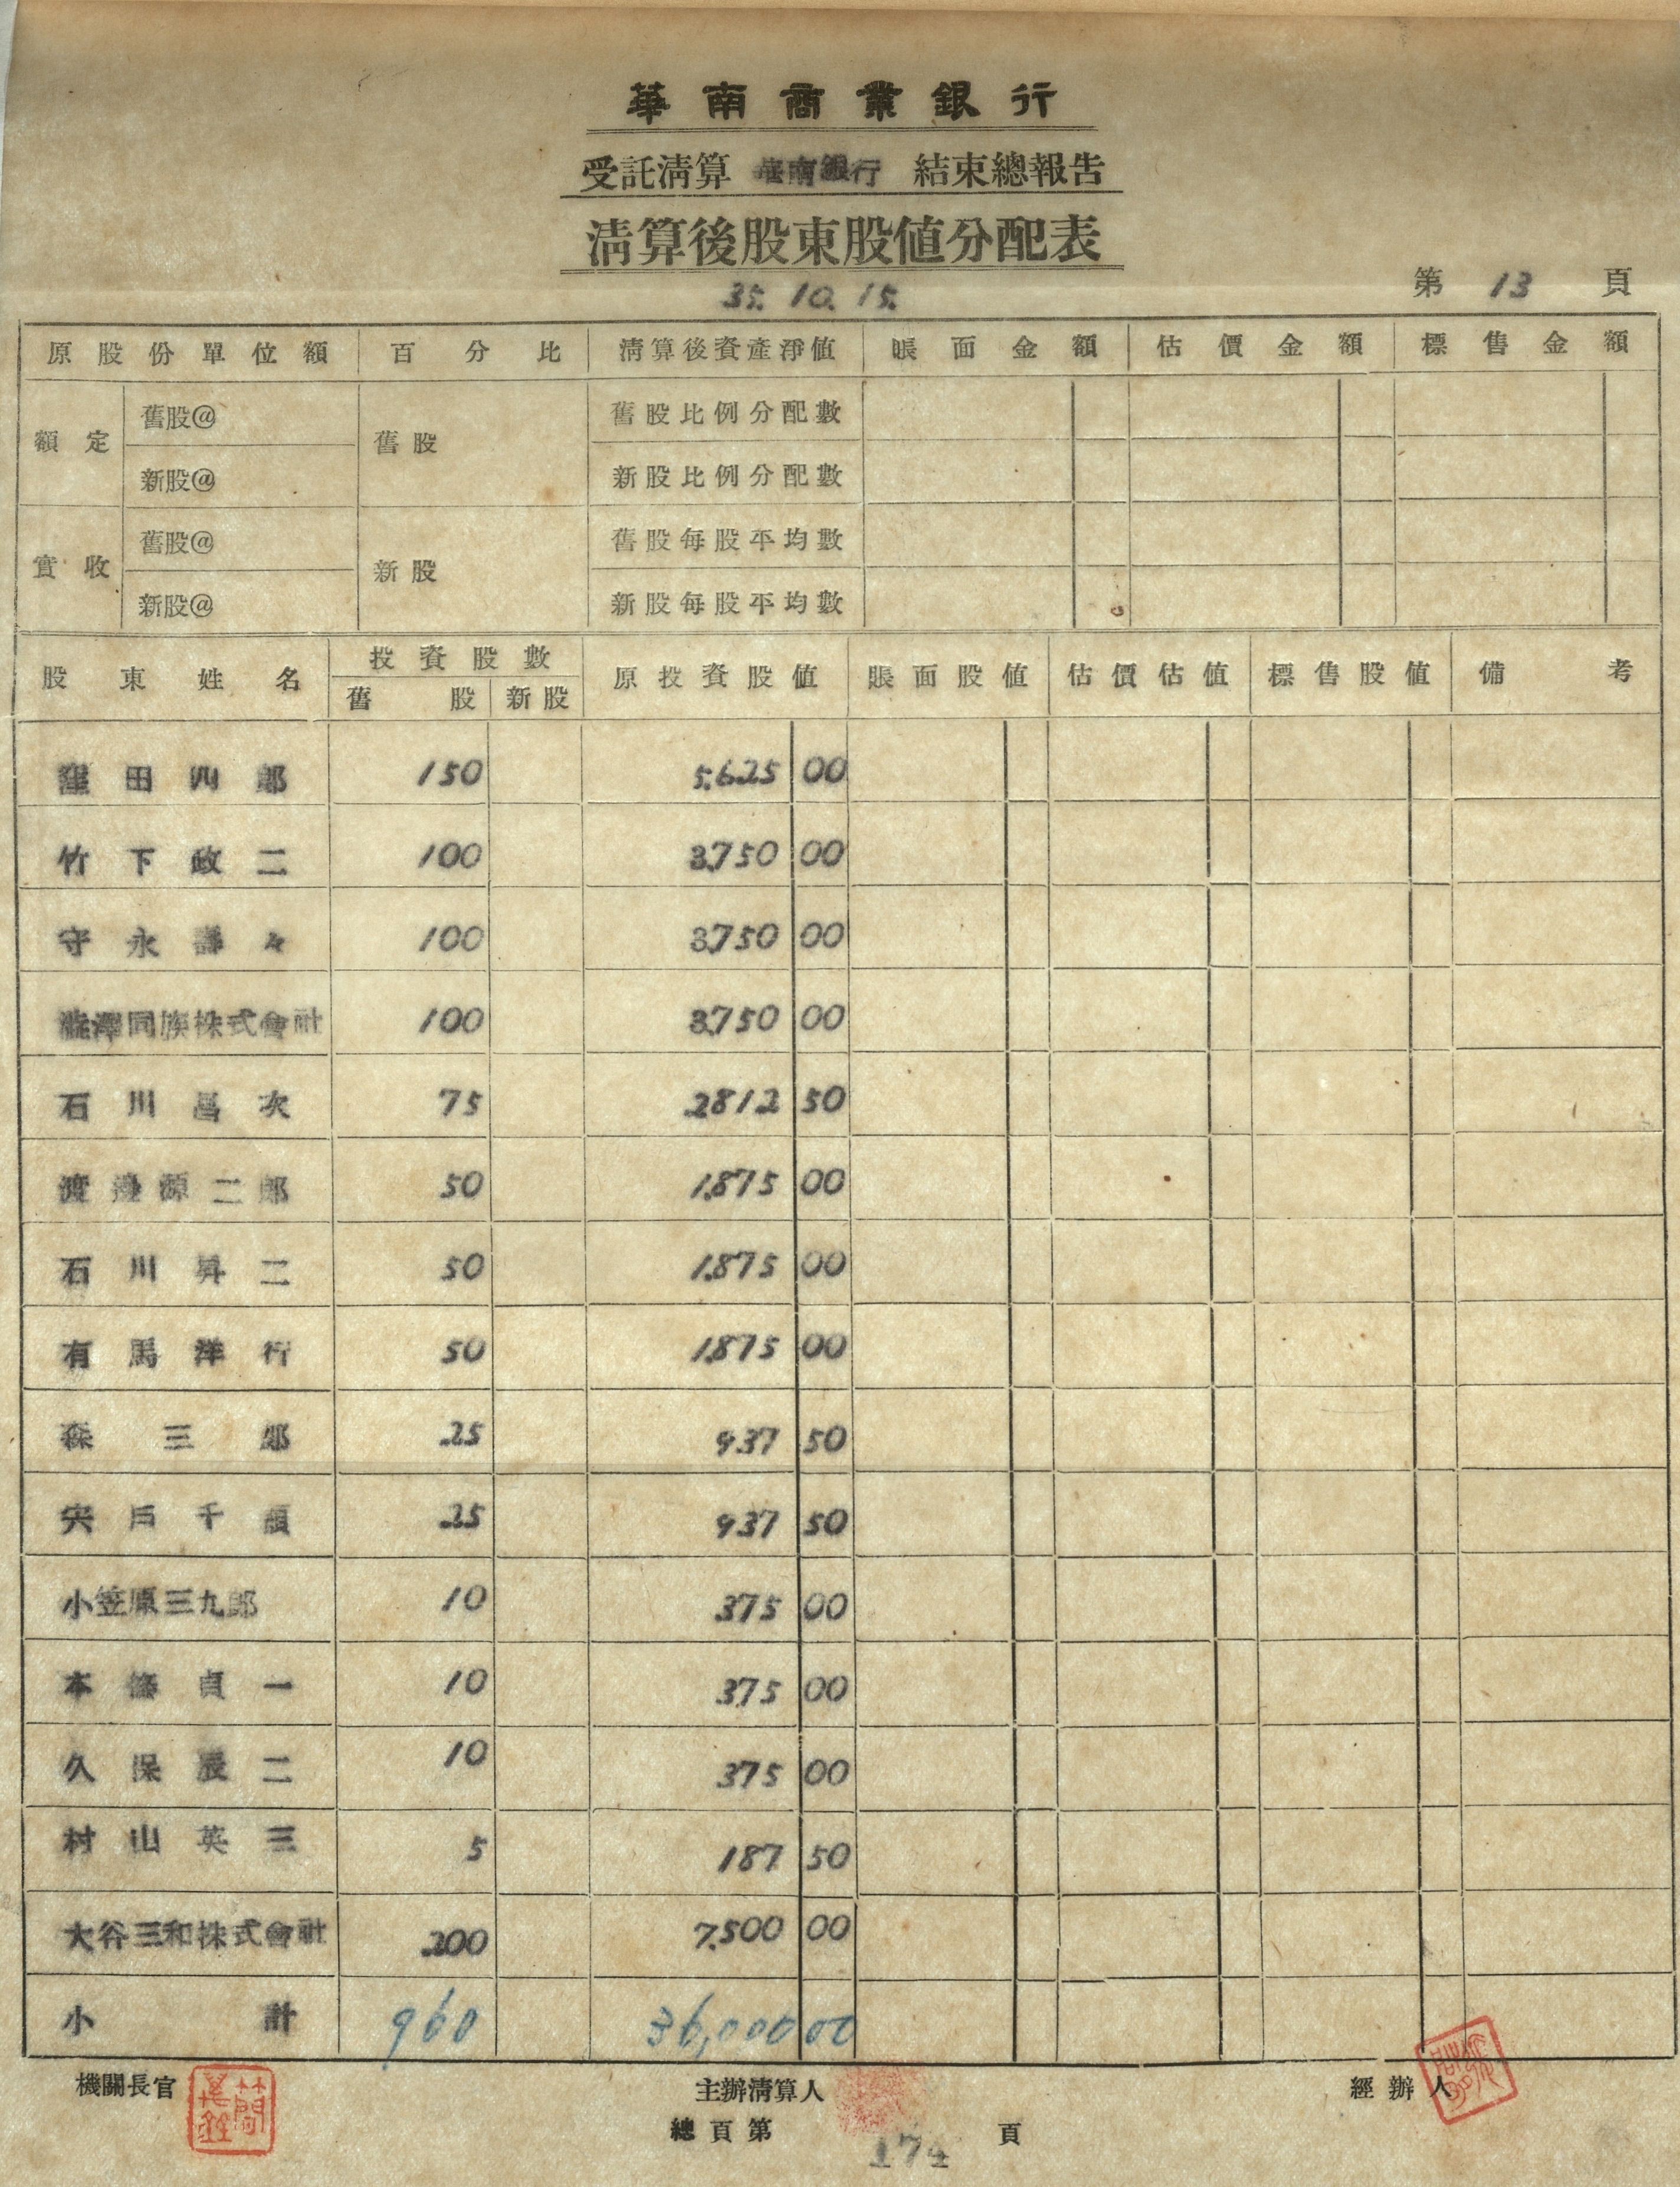 華南商業銀行
受託清算 華南銀行 結束總報告
清算後股東股值分配表
35. 10. 15.
第 13 頁
原股份單位額 百分比 清算後資產淨值 賬面金額 估價金額 標售金額
額定 舊股@ 舊股 舊股比例分配數
新股@ 新股比例分配數
實收 舊股@ 新股 舊股每股平均數
新股@ 新股每股平均數
股東姓名 投資股數 原投資股值 賬面股值 估價估值 標售股值 備考
舊股 新股
窪田四郎 150 5,625 00
竹下政二 100 3,750 00
守永 々 100 3,750 00
澤同族株式會社 100 3,750 00
石川昌次 75 2,812 50
渡邊源二郎 50 1,875 00
石川昇二 50 1,875 00
有馬洋行 50 1,875 00
森三郎 25 937 50
宍戶千 25 937 50
小笠原三九郎 10 375 00
本 貞一 10 375 00
久保辰二 10 375 00
村山英三 5 187 50
大谷三和株式會社 200 7,500 00
小計 960 36,000 00
機關長官 主辦清算人 經辦人
總頁第 174 頁